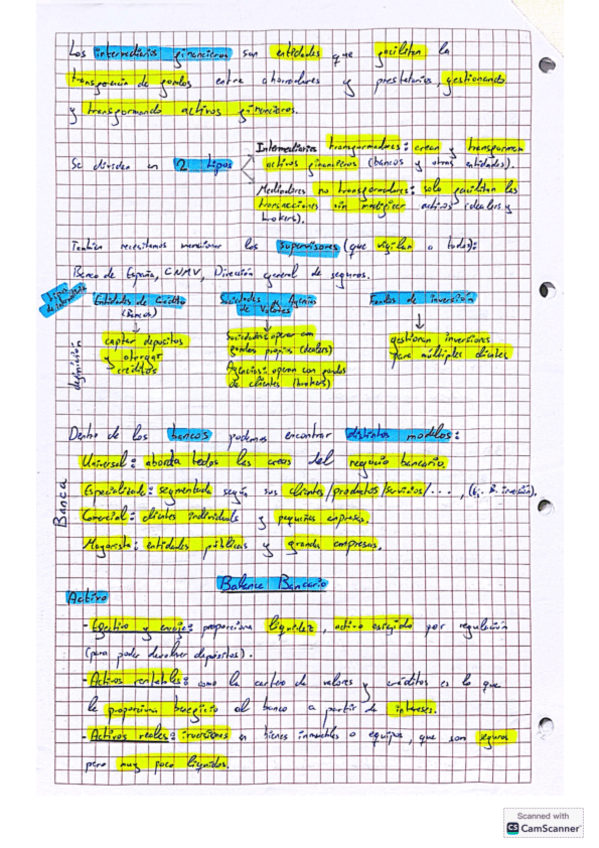 Los intermediarios financieros son entidades que facilitan la
transferencia de fondos entre ahorradores y prestatarios, gestionando
y transformando activos financieros.
Se dividen en 2 tipos
Intermediarios transformadores: crean y transforman
activos financieros (bancos y otras entidades).
Mediadores no transformadores: solo facilitan las
transacciones sin modificar activos (dealers y
brokers).
También necesitamos mencionar los supervisores (que vigilan a todos):
Banco de España, CNMV, Dirección general de seguros.
Tipos de intermediarios
Entidades de Crédito
(Bancos)
Sociedades y Agencias
de Valores
Fondos de inversión
definición
captar depósitos
y otorgar
créditos
Sociedades: operan con
fondos propios (dealers)
Agencias: operan con fondos
de clientes (brokers)
gestionan inversiones
para múltiples clientes
Dentro de los bancos podemos encontrar distintos modelos:
Banca
Universal: aborda todas las áreas del negocio bancario.
Especializada: segmentada según sus clientes/productos/servicios/..., (Ej. B. inversión).
Comercial: clientes individuales y pequeñas empresas.
Mayorista: entidades públicas y grandes empresas.
Balance Bancario
Activo
- Efectivo y encaje: proporciona liquidez, activo exigido por regulación
(para poder devolver depósitos).
- Activos rentables: como la cartera de valores y créditos es lo que
le proporciona beneficio al banco a partir de intereses.
- Activos reales: inversiones en bienes inmuebles o equipos, que son seguros
pero muy poco líquidos.
Scanned with
CS CamScanner